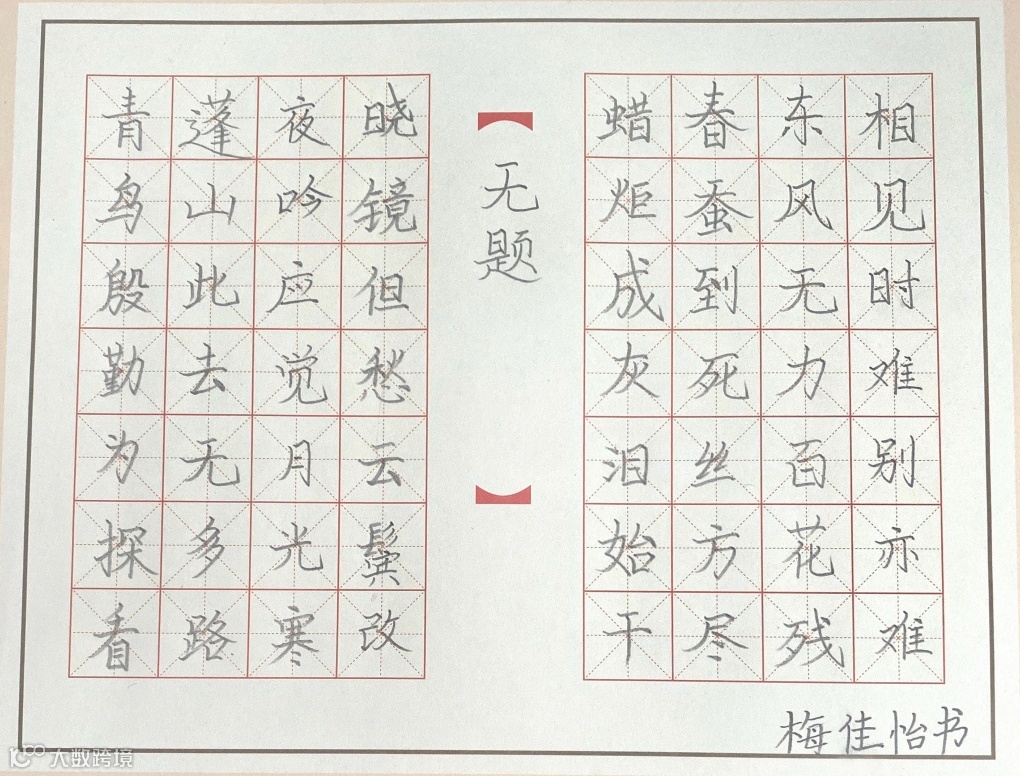 相见时难别亦难
东风无力百花残
春蚕到死丝方尽
蜡炬成灰泪始干
无题
晓镜但愁云鬓改
夜吟应觉月光寒
蓬山此去无多路
青鸟殷勤为探看
梅佳怡书
大数跨境